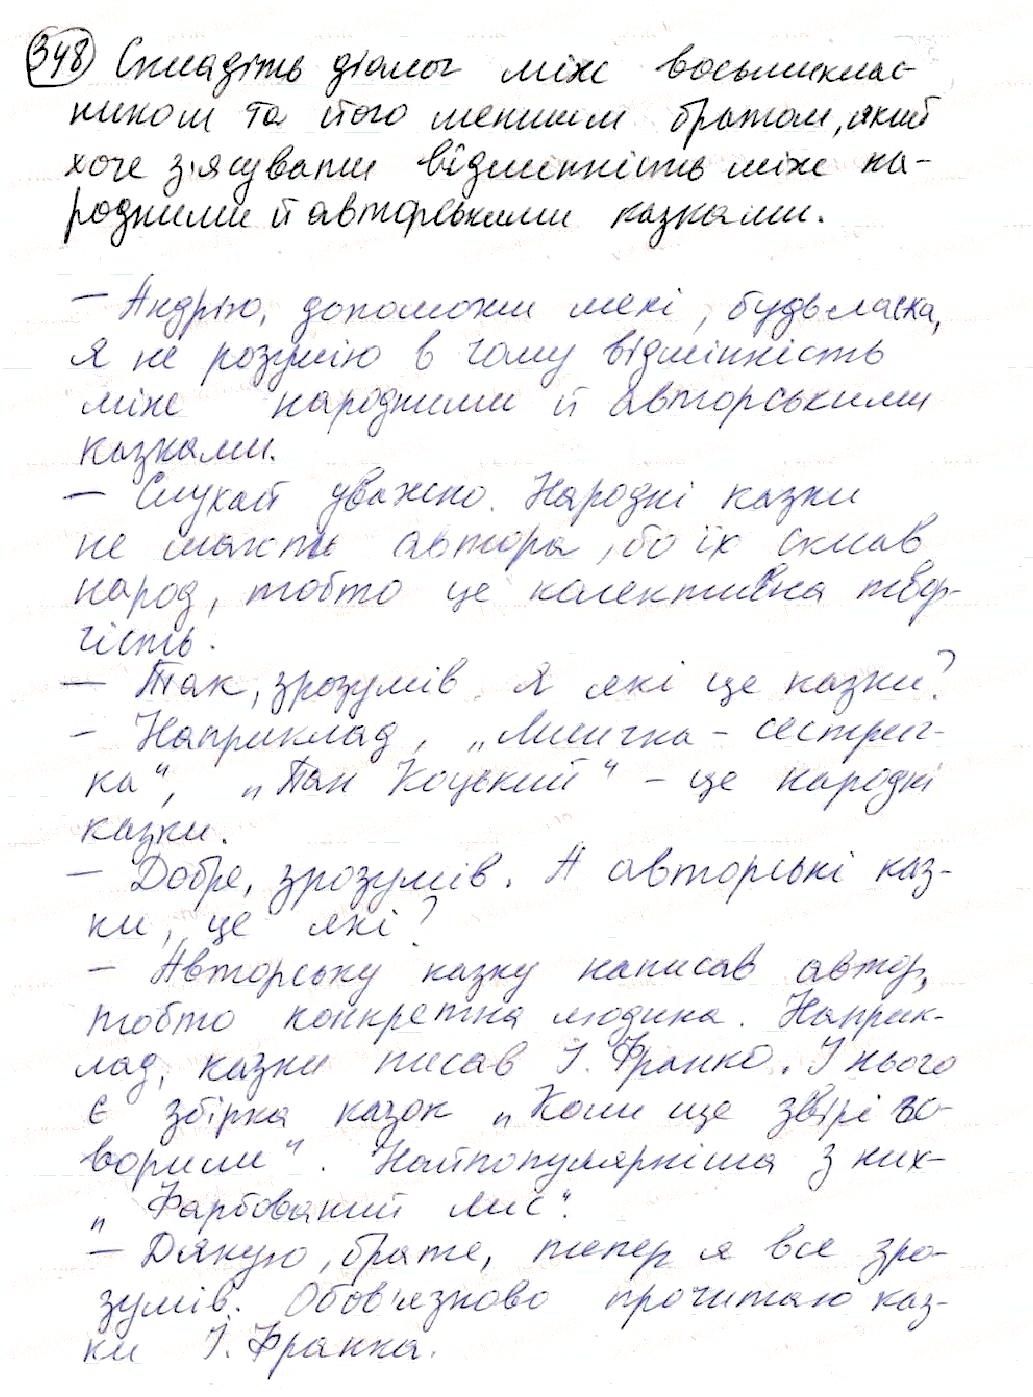 348 Складіть діалог між восьмиклас-
ником та його меншим братом, який
хоче з'ясувати відмінність між на-
родними й авторськими казками.
— Андрію, допоможи мені, будь ласка,
я не розумію в чому відмінність
між народними й авторськими
казками.
— Слухай уважно. Народні казки
не мають автора, бо їх склав
народ, тобто це колективна твор-
чість.
— Так, зрозумів. А які це казки?
— Наприклад, „Лисичка - сестрич-
ка", „Пан Коцький" - це народні
казки.
— Добре, зрозумів. А авторські каз-
ки, це які?
— Авторську казку написав автор,
тобто конкретна людина. Наприк-
лад, казки писав І. Франко. У нього
є збірка казок „Коли ще звірі го-
ворили". Найпопулярніша з них-
„Фарбований лис".
— Дякую, брате, тепер я все зро-
зумів. Обов'язково прочитаю каз-
ки І. Франка.